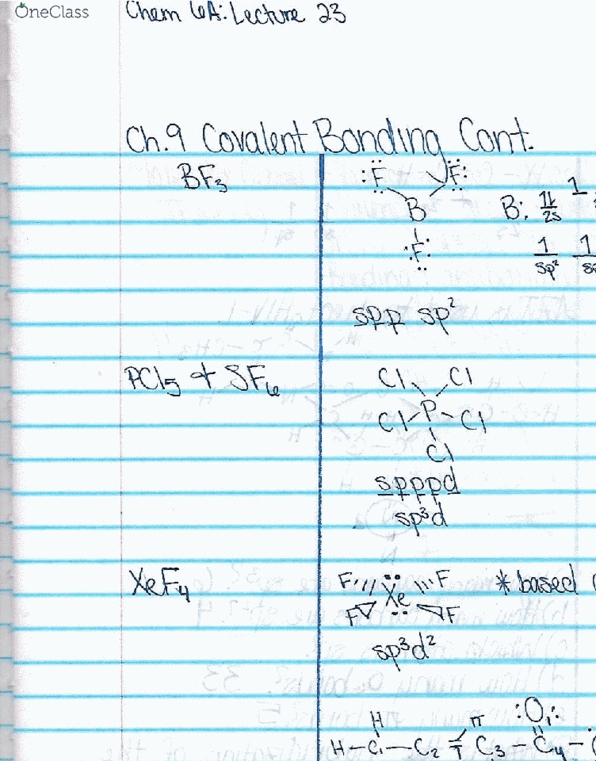 OneClass
Chem 6A: Lecture 23
Ch.9 Covalent Bonding Cont.
BF₃
:F: :F:
B
B: 1L 1
2s
:F:
1 1
sp²
spp sp²
PCl₅ + SF₆
Cl Cl
Cl-P-Cl
Cl
spppd
sp³d
XeF₄
F Xe F
F F
* based
sp³d²
H π :O:
H-C₁-C₂ = C₃-C₄-